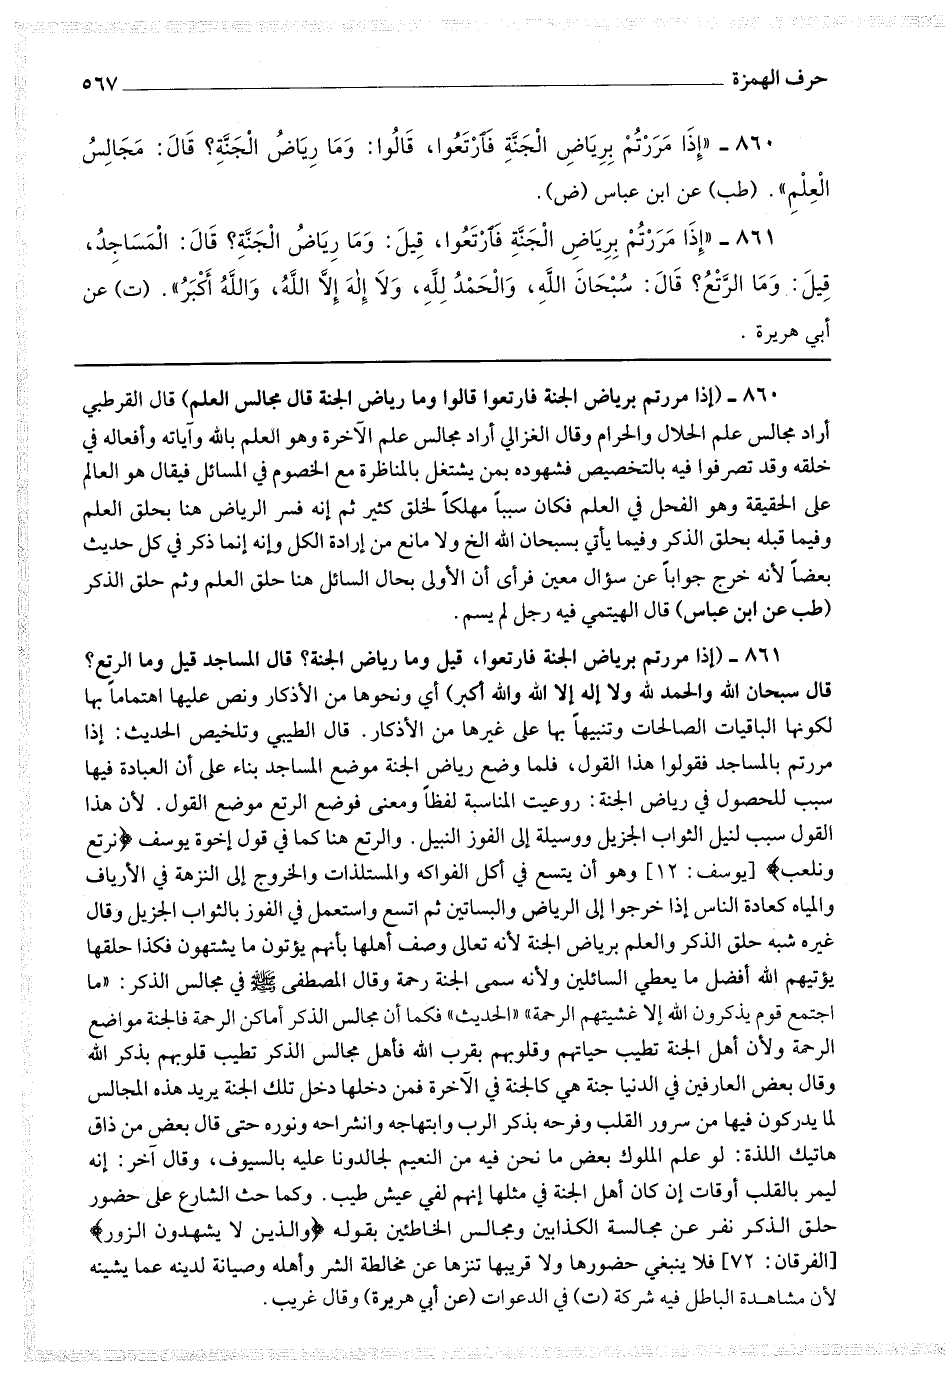 حرف الهمزة ٥٦٧
٨٦٠ ـ «إِذَا مَرَرْتُمْ بِرِيَاضِ الْجَنَّةِ فَارْتَعُوا، قَالُوا: وَمَا رِيَاضُ الْجَنَّةِ؟ قَالَ: مَجَالِسُ
الْعِلْمِ». (طب) عن ابن عباس (ض).
٨٦١ ـ «إِذَا مَرَرْتُمْ بِرِيَاضِ الْجَنَّةِ فَارْتَعُوا، قِيلَ: وَمَا رِيَاضُ الْجَنَّةِ؟ قَالَ: الْمَسَاجِدُ،
قِيلَ: وَمَا الرَّتْعُ؟ قَالَ: سُبْحَانَ اللَّهِ، وَالْحَمْدُ لِلَّهِ، وَلَا إِلٰهَ إِلَّا اللَّهُ، وَاللَّهُ أَكْبَرُ». (ت) عن
أبي هريرة .
٨٦٠ ـ (إذا مررتم برياض الجنة فارتعوا قالوا وما رياض الجنة قال مجالس العلم) قال القرطبي
أراد مجالس علم الحلال والحرام وقال الغزالي أراد مجالس علم الآخرة وهو العلم بالله وآياته وأفعاله في
خلقه وقد تصرفوا فيه بالتخصيص فشهوده بمن يشتغل بالمناظرة مع الخصوم في المسائل فيقال هو العالم
على الحقيقة وهو الفحل في العلم فكان سبباً مهلكاً لخلق كثير ثم إنه فسر الرياض هنا بحلق العلم
وفيما قبله بحلق الذكر وفيما يأتي بسبحان الله الخ ولا مانع من إرادة الكل وإنه إنما ذكر في كل حديث
بعضاً لأنه خرج جواباً عن سؤال معين فرأى أن الأولى بحال السائل هنا حلق العلم وثم حلق الذكر
(طب عن ابن عباس) قال الهيتمي فيه رجل لم يسم.
٨٦١ ـ (إذا مررتم برياض الجنة فارتعوا، قيل وما رياض الجنة؟ قال المساجد قيل وما الرتع؟
قال سبحان الله والحمد لله ولا إله إلا الله والله أكبر) أي ونحوها من الأذكار ونص عليها اهتماماً بها
لكونها الباقيات الصالحات وتنبيهاً بها على غيرها من الأذكار. قال الطيبي وتلخيص الحديث: إذا
مررتم بالمساجد فقولوا هذا القول، فلما وضع رياض الجنة موضع المساجد بناء على أن العبادة فيها
سبب للحصول في رياض الجنة: روعيت المناسبة لفظاً ومعنى فوضع الرتع موضع القول. لأن هذا
القول سبب لنيل الثواب الجزيل ووسيلة إلى الفوز النبيل. والرتع هنا كما في قول إخوة يوسف ﴿نرتع
ونلعب﴾ [يوسف: ١٢] وهو أن يتسع في أكل الفواكه والمستلذات والخروج إلى النزهة في الأرياف
والمياه كعادة الناس إذا خرجوا إلى الرياض والبساتين ثم اتسع واستعمل في الفوز بالثواب الجزيل وقال
غيره شبه حلق الذكر والعلم برياض الجنة لأنه تعالى وصف أهلها بأنهم يؤتون ما يشتهون فكذا حلقها
يؤتيهم الله أفضل ما يعطي السائلين ولأنه سمى الجنة رحمة وقال المصطفى ﷺ في مجالس الذكر: «ما
اجتمع قوم يذكرون الله إلا غشيتهم الرحمة» «الحديث» فكما أن مجالس الذكر أماكن الرحمة فالجنة مواضع
الرحمة ولأن أهل الجنة تطيب حياتهم وقلوبهم بقرب الله فأهل مجالس الذكر تطيب قلوبهم بذكر الله
وقال بعض العارفين في الدنيا جنة هي كالجنة في الآخرة فمن دخلها دخل تلك الجنة يريد هذه المجالس
لما يدركون فيها من سرور القلب وفرحه بذكر الرب وابتهاجه وانشراحه ونوره حتى قال بعض من ذاق
هاتيك اللذة: لو علم الملوك بعض ما نحن فيه من النعيم لجالدونا عليه بالسيوف، وقال آخر: إنه
ليمر بالقلب أوقات إن كان أهل الجنة في مثلها إنهم لفي عيش طيب. وكما حث الشارع على حضور
حلق الذكر نفر عن مجالسة الكذابين ومجالس الخاطئين بقوله ﴿والذين لا يشهدون الزور﴾
[الفرقان: ٧٢] فلا ينبغي حضورها ولا قريبها تنزها عن مخالطة الشر وأهله وصيانة لدينه عما يشينه
لأن مشاهدة الباطل فيه شركة (ت) في الدعوات (عن أبي هريرة) وقال غريب.